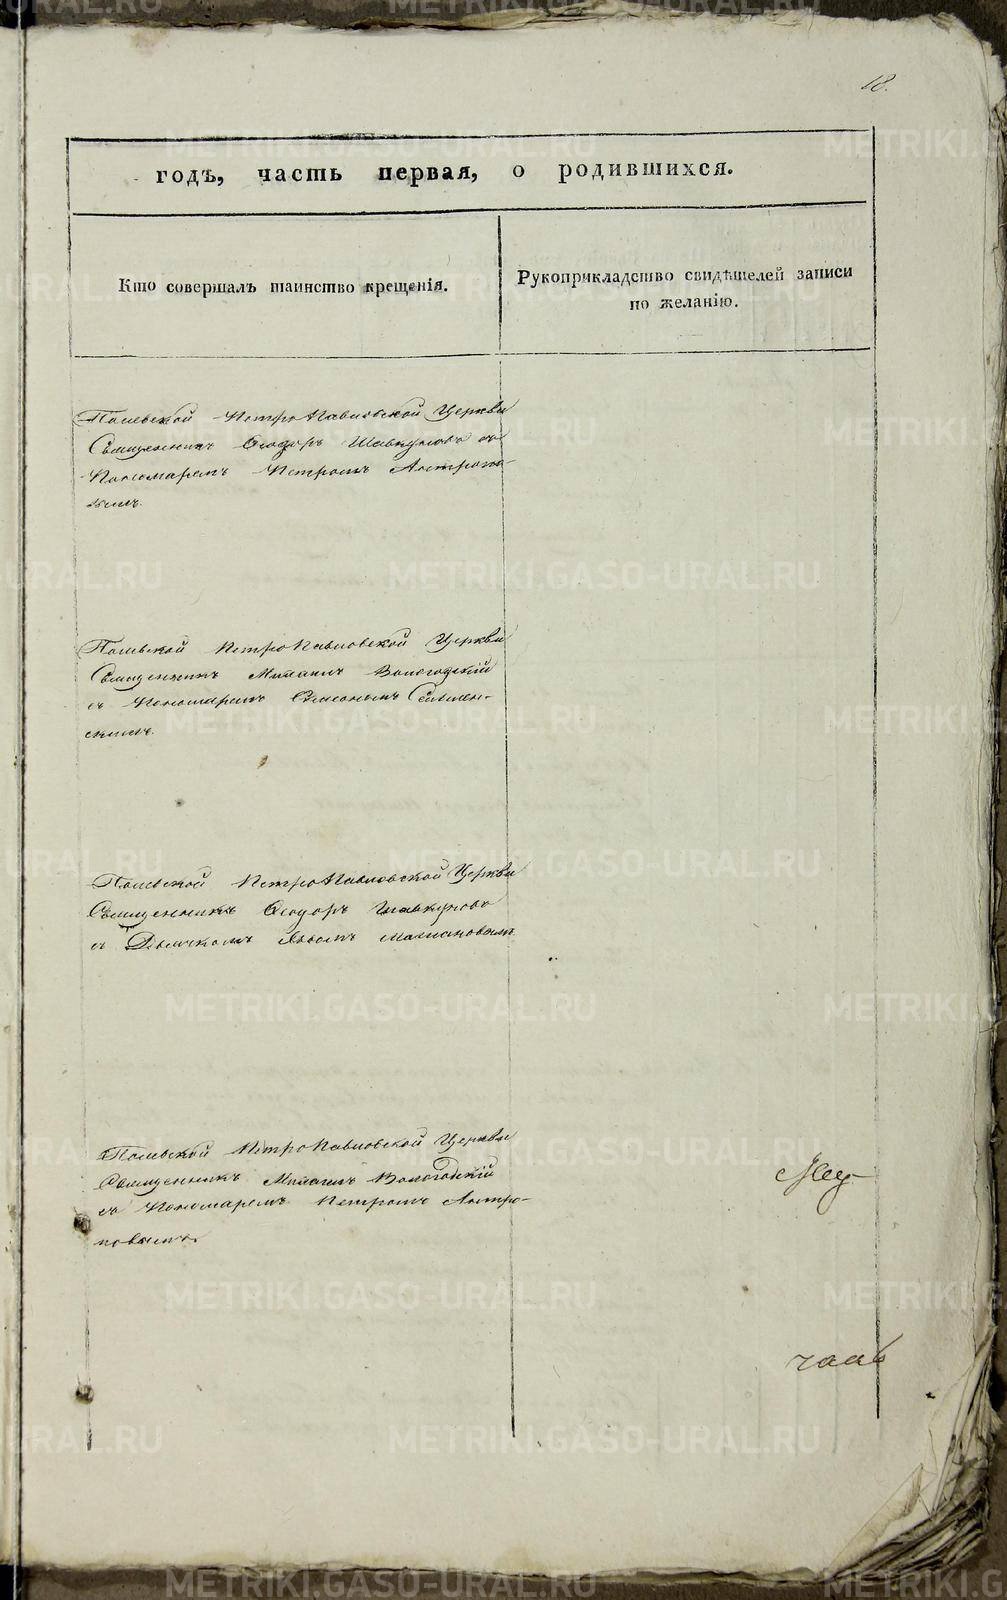 18.
годъ, часть первая, о родившихся.
Кто совершалъ таинство крещенія.
Рукоприкладство свидѣтелей записи
по желанію.
Полевской Петропавловской Церкви
Священникъ Ѳеодоръ Шавкуновъ съ
Пономаремъ Петромъ Антропо-
вымъ.
Полевской Петропавловской Церкви
Священникъ Михаилъ Вологодскій
съ Пономаремъ Смолен-
скимъ.
Полевской Петропавловской Церкви
Священникъ Ѳеодоръ Шавкуновъ
съ Дьячкомъ
Полевской Петропавловской Церкви
Священникъ Михаилъ Вологодскій
съ Пономаремъ Петромъ Антро-
повымъ.
METRIKI.GASO-URAL.RU